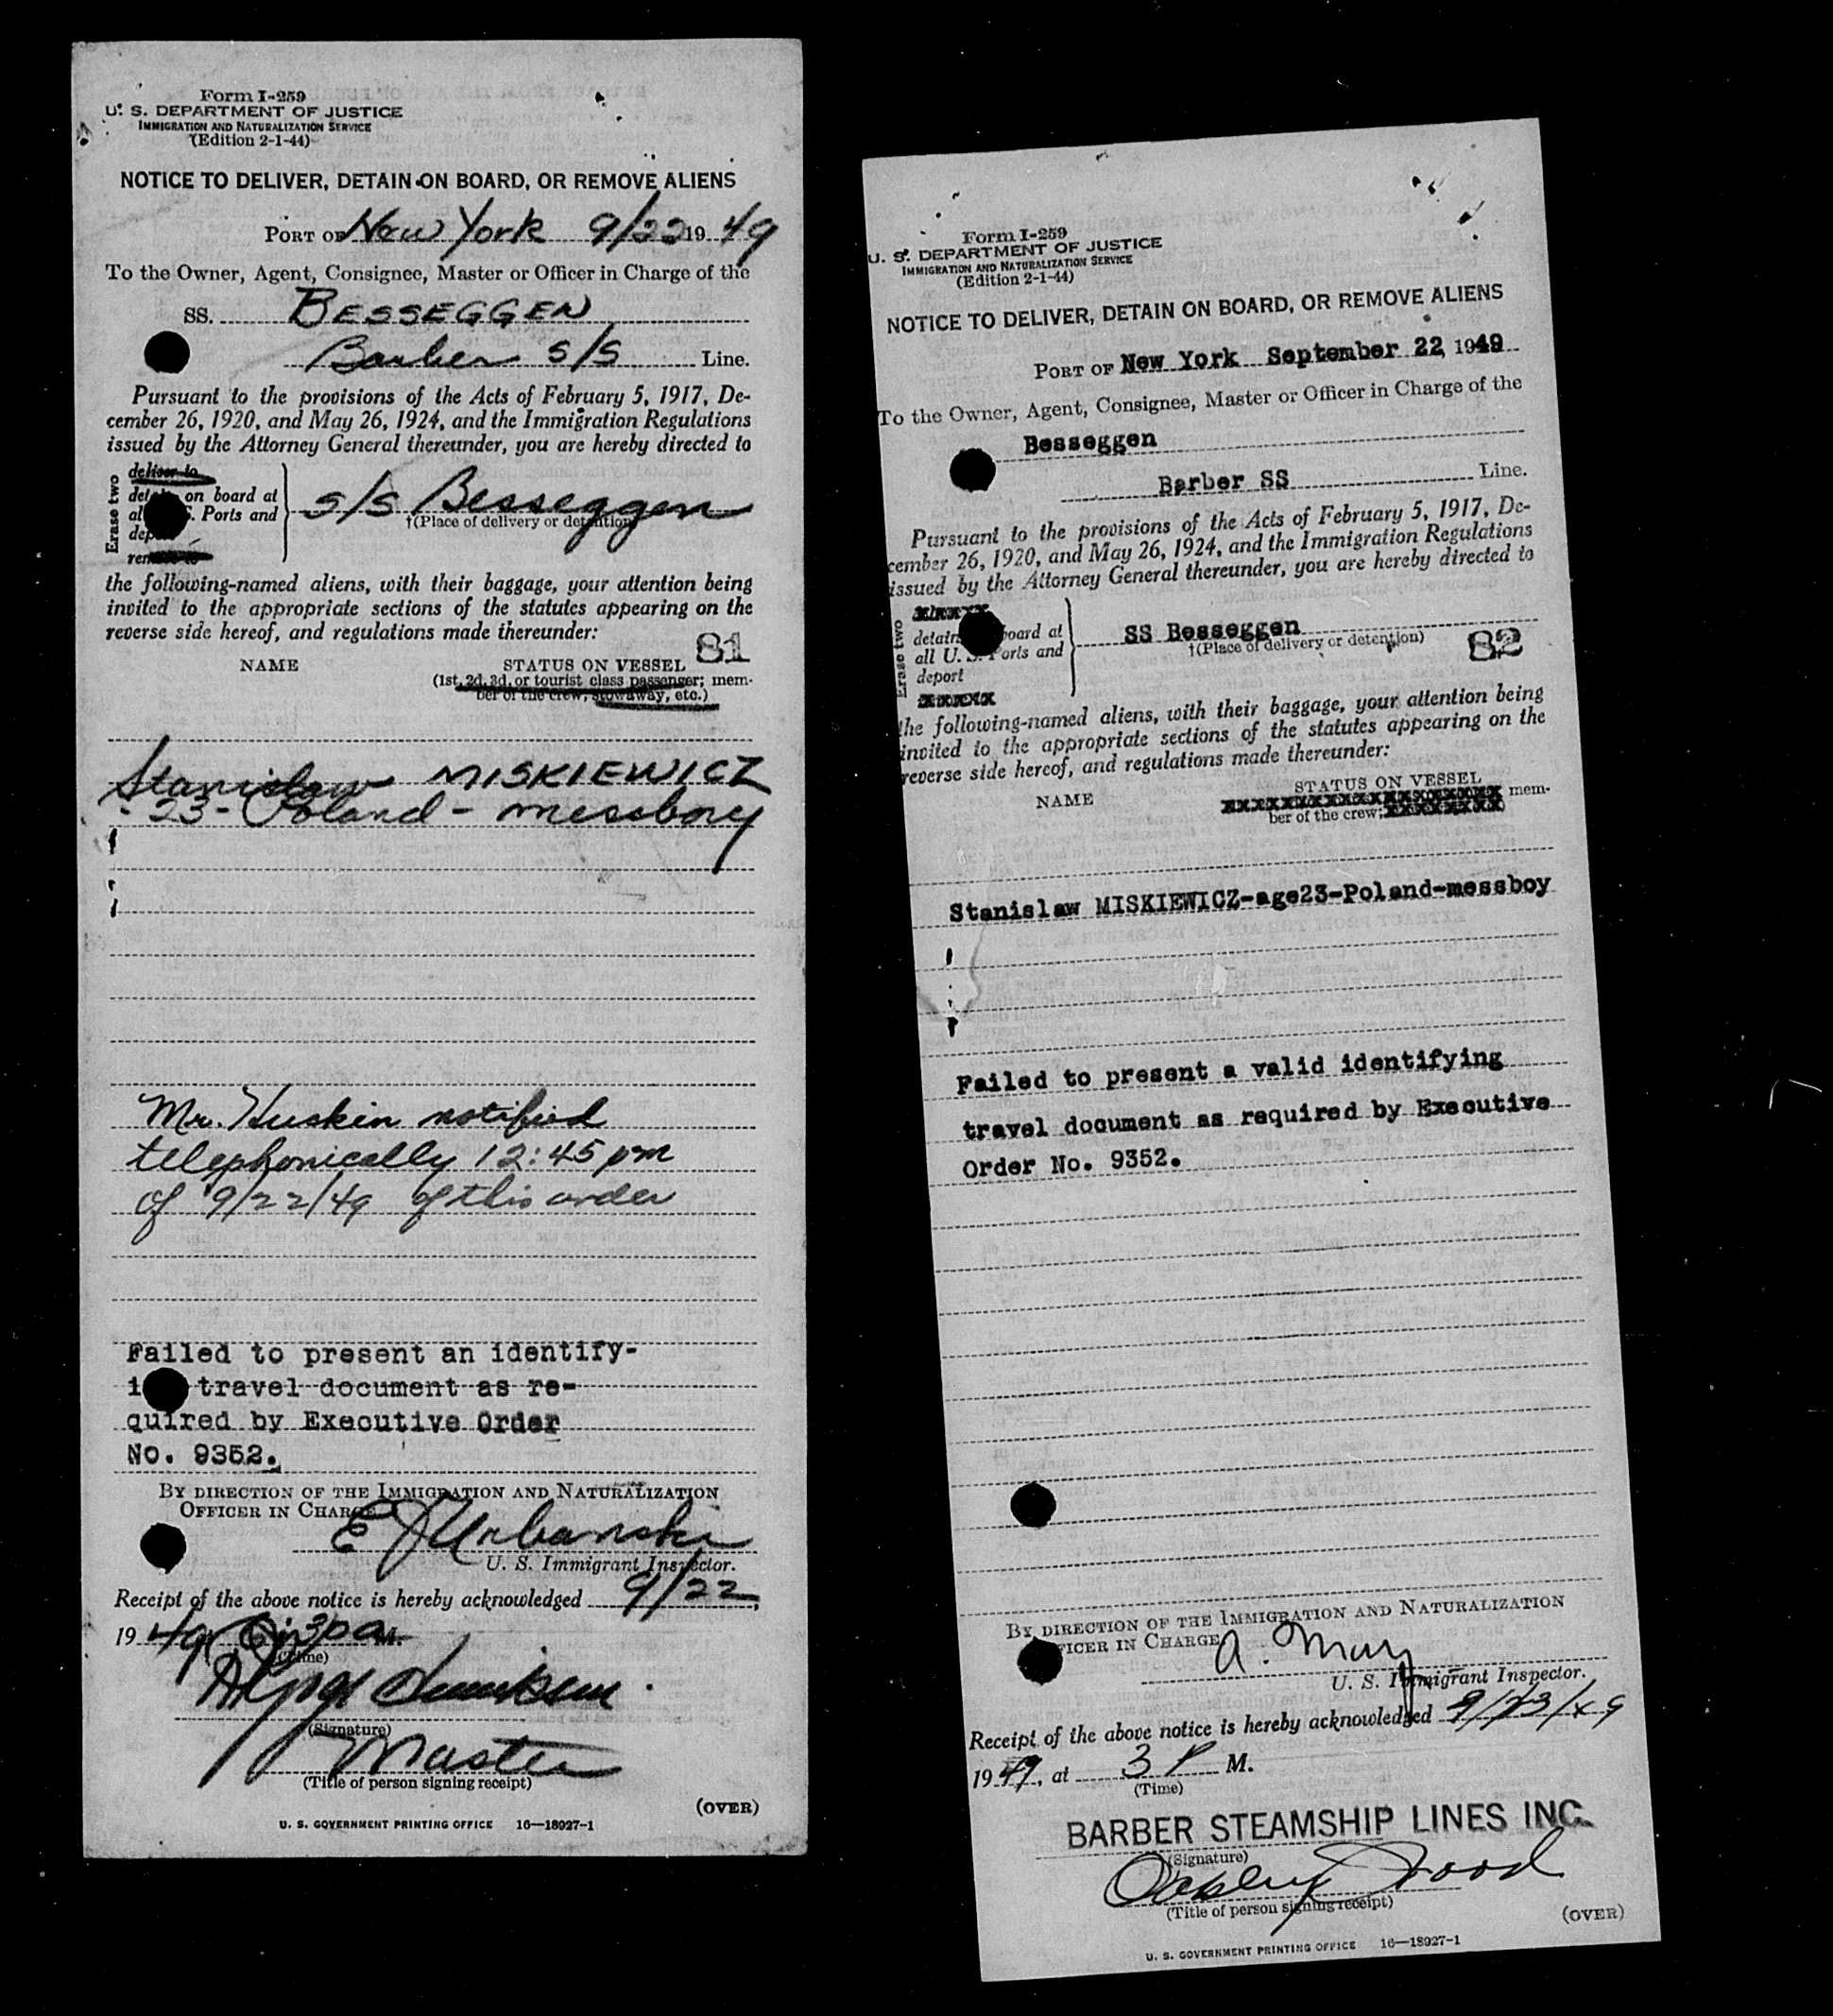 Form I-259
U. S. DEPARTMENT OF JUSTICE
IMMIGRATION AND NATURALIZATION SERVICE
(Edition 2-1-44)
NOTICE TO DELIVER, DETAIN ON BOARD, OR REMOVE ALIENS
PORT OF New York 9/22 1949
To the Owner, Agent, Consignee, Master or Officer in Charge of the
SS. BESSEGGEN
Barber S/S Line.
Pursuant to the provisions of the Acts of February 5, 1917, De-
cember 26, 1920, and May 26, 1924, and the Immigration Regulations
issued by the Attorney General thereunder, you are hereby directed to
Erase two
deliver to
on board at
Ports and
S/S Besseggen
†(Place of delivery or detention)
the following-named aliens, with their baggage, your attention being
invited to the appropriate sections of the statutes appearing on the
reverse side hereof, and regulations made thereunder:
81
NAME STATUS ON VESSEL
(1st, 2d, 3d, or tourist class passenger; mem-
ber of the crew; stowaway, etc.)
Stanislaw MISKIEWICZ
- 23 - Poland - messboy
Mr. Huskin notified
telephonically 12:45 pm
of 9/22/49 of this order
Failed to present an identify-
travel document as re-
quired by Executive Order
No. 9352.
BY DIRECTION OF THE IMMIGRATION AND NATURALIZATION
OFFICER IN CHARGE
E J Urbanski
U. S. Immigrant Inspector.
Receipt of the above notice is hereby acknowledged 9/22,
1949
(Time)
(Signature)
Master
(Title of person signing receipt)
(OVER)
U. S. GOVERNMENT PRINTING OFFICE 16—18927-1
Form I-259
U. S. DEPARTMENT OF JUSTICE
IMMIGRATION AND NATURALIZATION SERVICE
(Edition 2-1-44)
NOTICE TO DELIVER, DETAIN ON BOARD, OR REMOVE ALIENS
PORT OF New York September 22, 1949
To the Owner, Agent, Consignee, Master or Officer in Charge of the
Besseggen
Barber SS Line.
Pursuant to the provisions of the Acts of February 5, 1917, De-
cember 26, 1920, and May 26, 1924, and the Immigration Regulations
issued by the Attorney General thereunder, you are hereby directed to
Erase two
detain board at
all U. S. Ports and
deport
SS Besseggen
†(Place of delivery or detention)
82
the following-named aliens, with their baggage, your attention being
invited to the appropriate sections of the statutes appearing on the
reverse side hereof, and regulations made thereunder:
NAME STATUS ON VESSEL
mem-
ber of the crew;
Stanislaw MISKIEWICZ-age23-Poland-messboy
Failed to present a valid identifying
travel document as required by Executive
Order No. 9352.
BY DIRECTION OF THE IMMIGRATION AND NATURALIZATION
OFFICER IN CHARGE
A. May
U. S. Immigrant Inspector.
Receipt of the above notice is hereby acknowledged 9/23/49
1949, at 3 P M.
(Time)
BARBER STEAMSHIP LINES INC.
(Signature)
Oakley Wood
(Title of person signing receipt)
(OVER)
U. S. GOVERNMENT PRINTING OFFICE 16—18927-1